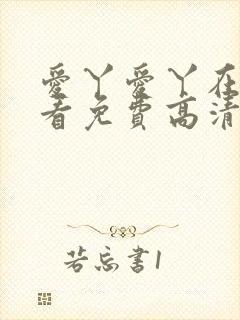 愛丫愛丫在
看免費高清
若忘書1